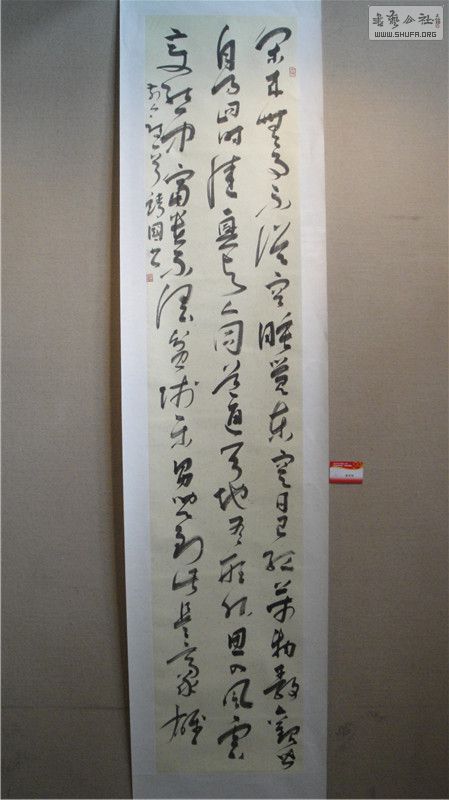 書藝公社
WWW.SHUFA.ORG
閑來無事不從容睡覺東窗日已紅萬物靜觀皆
自得四時佳興與人同道通天地有形外思入風雲
變態中富貴不淫貧賤樂男兒到此是豪雄
國